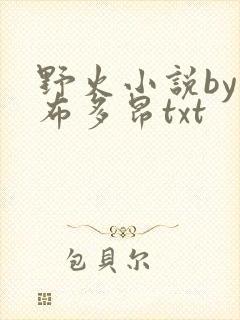 野火小説by
布多昂txt
包貝尔